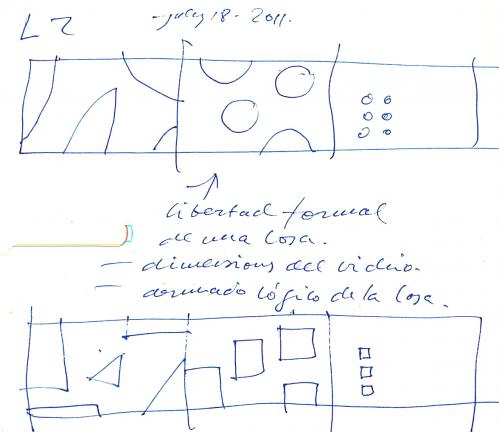 L2 - july 18 - 2011.
libertad formal
de una losa.
— dimensions del vidrio.
— armado lógico de la losa.